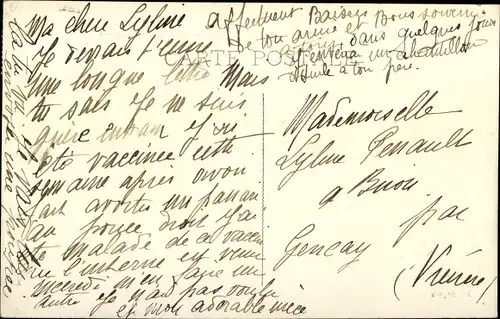 Ma chère Lyline
Je devais t'écrire
une longue lettre Mais
tu sais Je ne suis
guère en train J'ai
été vaccinée cette
semaine après avoir
fait avorter un panari
au pouce droit J'ai
été malade de ce vaccin
que l'interne est venu
mercredi m'en faire un
autre Je n'ai pas voulu
et mon adorable nièce
Affectueux Baisers et Bons souvenirs
de ton amie et
dans quelques jours
un échantillon
à ton père.
CARTE POSTALE
Mademoiselle
Lyline Penault
à Brion
par
Gençay
(Vienne)